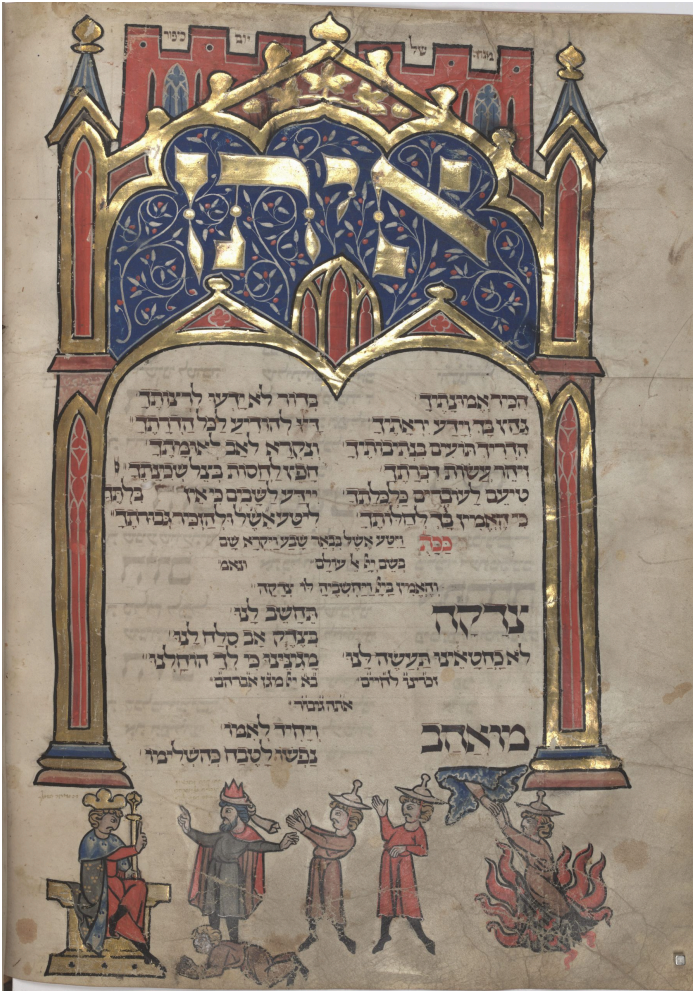 מנחה של יום כיפור
איתן
הכיר אמונתיך בדור לא ידעו לרצותך
גהץ בך וידע יראתיך דץ להודיע לכל הדרתך
הדריך תועים בנתיבותיך ונקרא לאב לאומתך
זיהר עשות דברתך חפץ לחסות בצל שכינתך
טיעם לעוברים כלכלתך יידע לשבים כי אין בלתך
כי האמין בך לחלותך ליטע אשל ולהזכיר גבורתך
ככת' ויטע אשל בבאר שבע ויקרא שם
בשם ייי אל עולם ונאמ'
והאמין בייי ויחשביה לו צדקה
צדקה תחשב לנו
בצדק אב סלח לנו
לא כחטאינו תעשה לנו מגנינו כי לך הוחלנו
זכרינו לחיים בא ייי מגן אברהם
אתה גיבור
מואהב ויחיד לאמו
נפשו לטבח בהשלימו